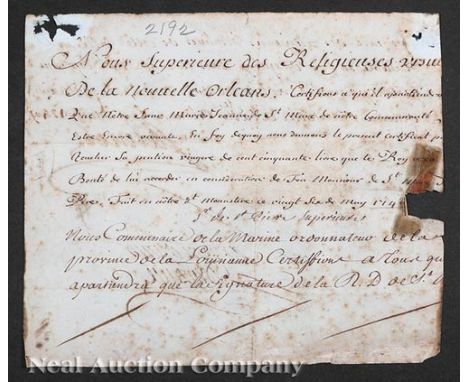 2192
Nous Superieure des Religieuses
De la nouvelle orleans. Certifions a qu'il apartiendra
Que Nôtre Sœur Marie Jeanne de St. Marc de nôtre Communauté
Estre Encore vivante. En foy dequoy nous donnons le present Certificat
Sa pention viagere de cent cinquante livre que le Roy
Bonté de lui accorder en consideration de Feu Monsieur de St.
Pere, Fait en nôtre Monastere ce vingt de May 174
Sr. de St. Pierre Superieure
Nous Commissaire de la Marine ordonnateur de la
province de la Louisianne Certiffions a tous qu
apartiendra que la signature de la R. D de St.
Neal Auction Company